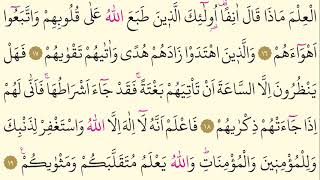 الْعِلْمَ مَاذَا قَالَ اٰنِفًا۠ اُو۬لٰٓئِكَ الَّذ۪ينَ طَبَعَ اللّٰهُ عَلٰى قُلُوبِهِمْ وَاتَّبَعُٓوا
اَهْوَٓاءَهُمْ ﴿١٦﴾ وَالَّذ۪ينَ اهْتَدَوْا زَادَهُمْ هُدًى وَاٰتٰيهُمْ تَقْوٰيهُمْ ﴿١٧﴾ فَهَلْ
يَنْظُرُونَ اِلَّا السَّاعَةَ اَنْ تَأْتِيَهُمْ بَغْتَةًۚ فَقَدْ جَٓاءَ اَشْرَاطُهَاۚ فَاَنّٰى لَهُمْ
اِذَا جَٓاءَتْهُمْ ذِكْرٰيهُمْ ﴿١٨﴾ فَاعْلَمْ اَنَّهُ لَٓا اِلٰهَ اِلَّا اللّٰهُ وَاسْتَغْفِرْ لِذَنْبِكَ
وَلِلْمُؤْمِن۪ينَ وَالْمُؤْمِنَاتِۜ وَاللّٰهُ يَعْلَمُ مُتَقَلَّبَكُمْ وَمَثْوٰيكُمْ۟ ﴿١٩﴾